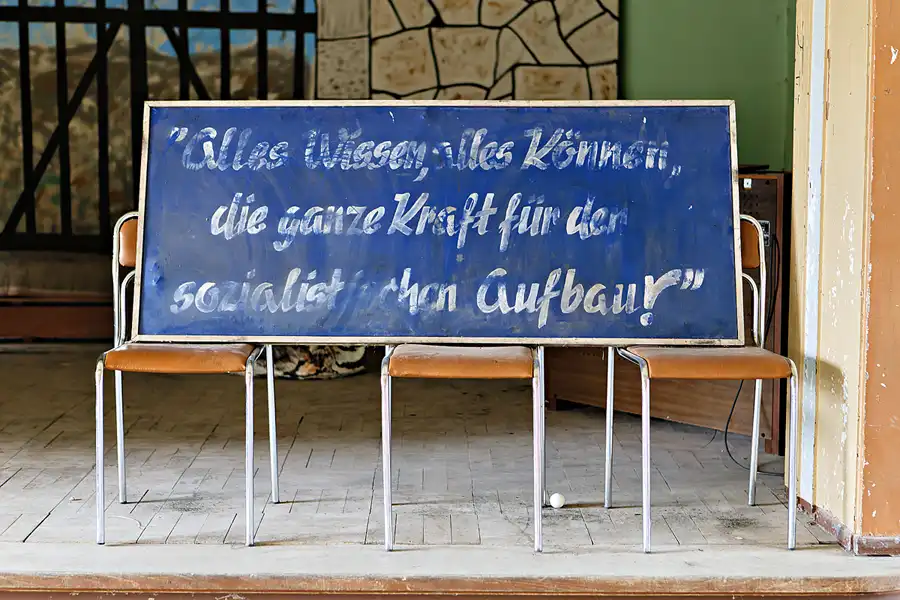 "Alles Wissen, alles Können,
die ganze Kraft für den
sozialistischen Aufbau!"